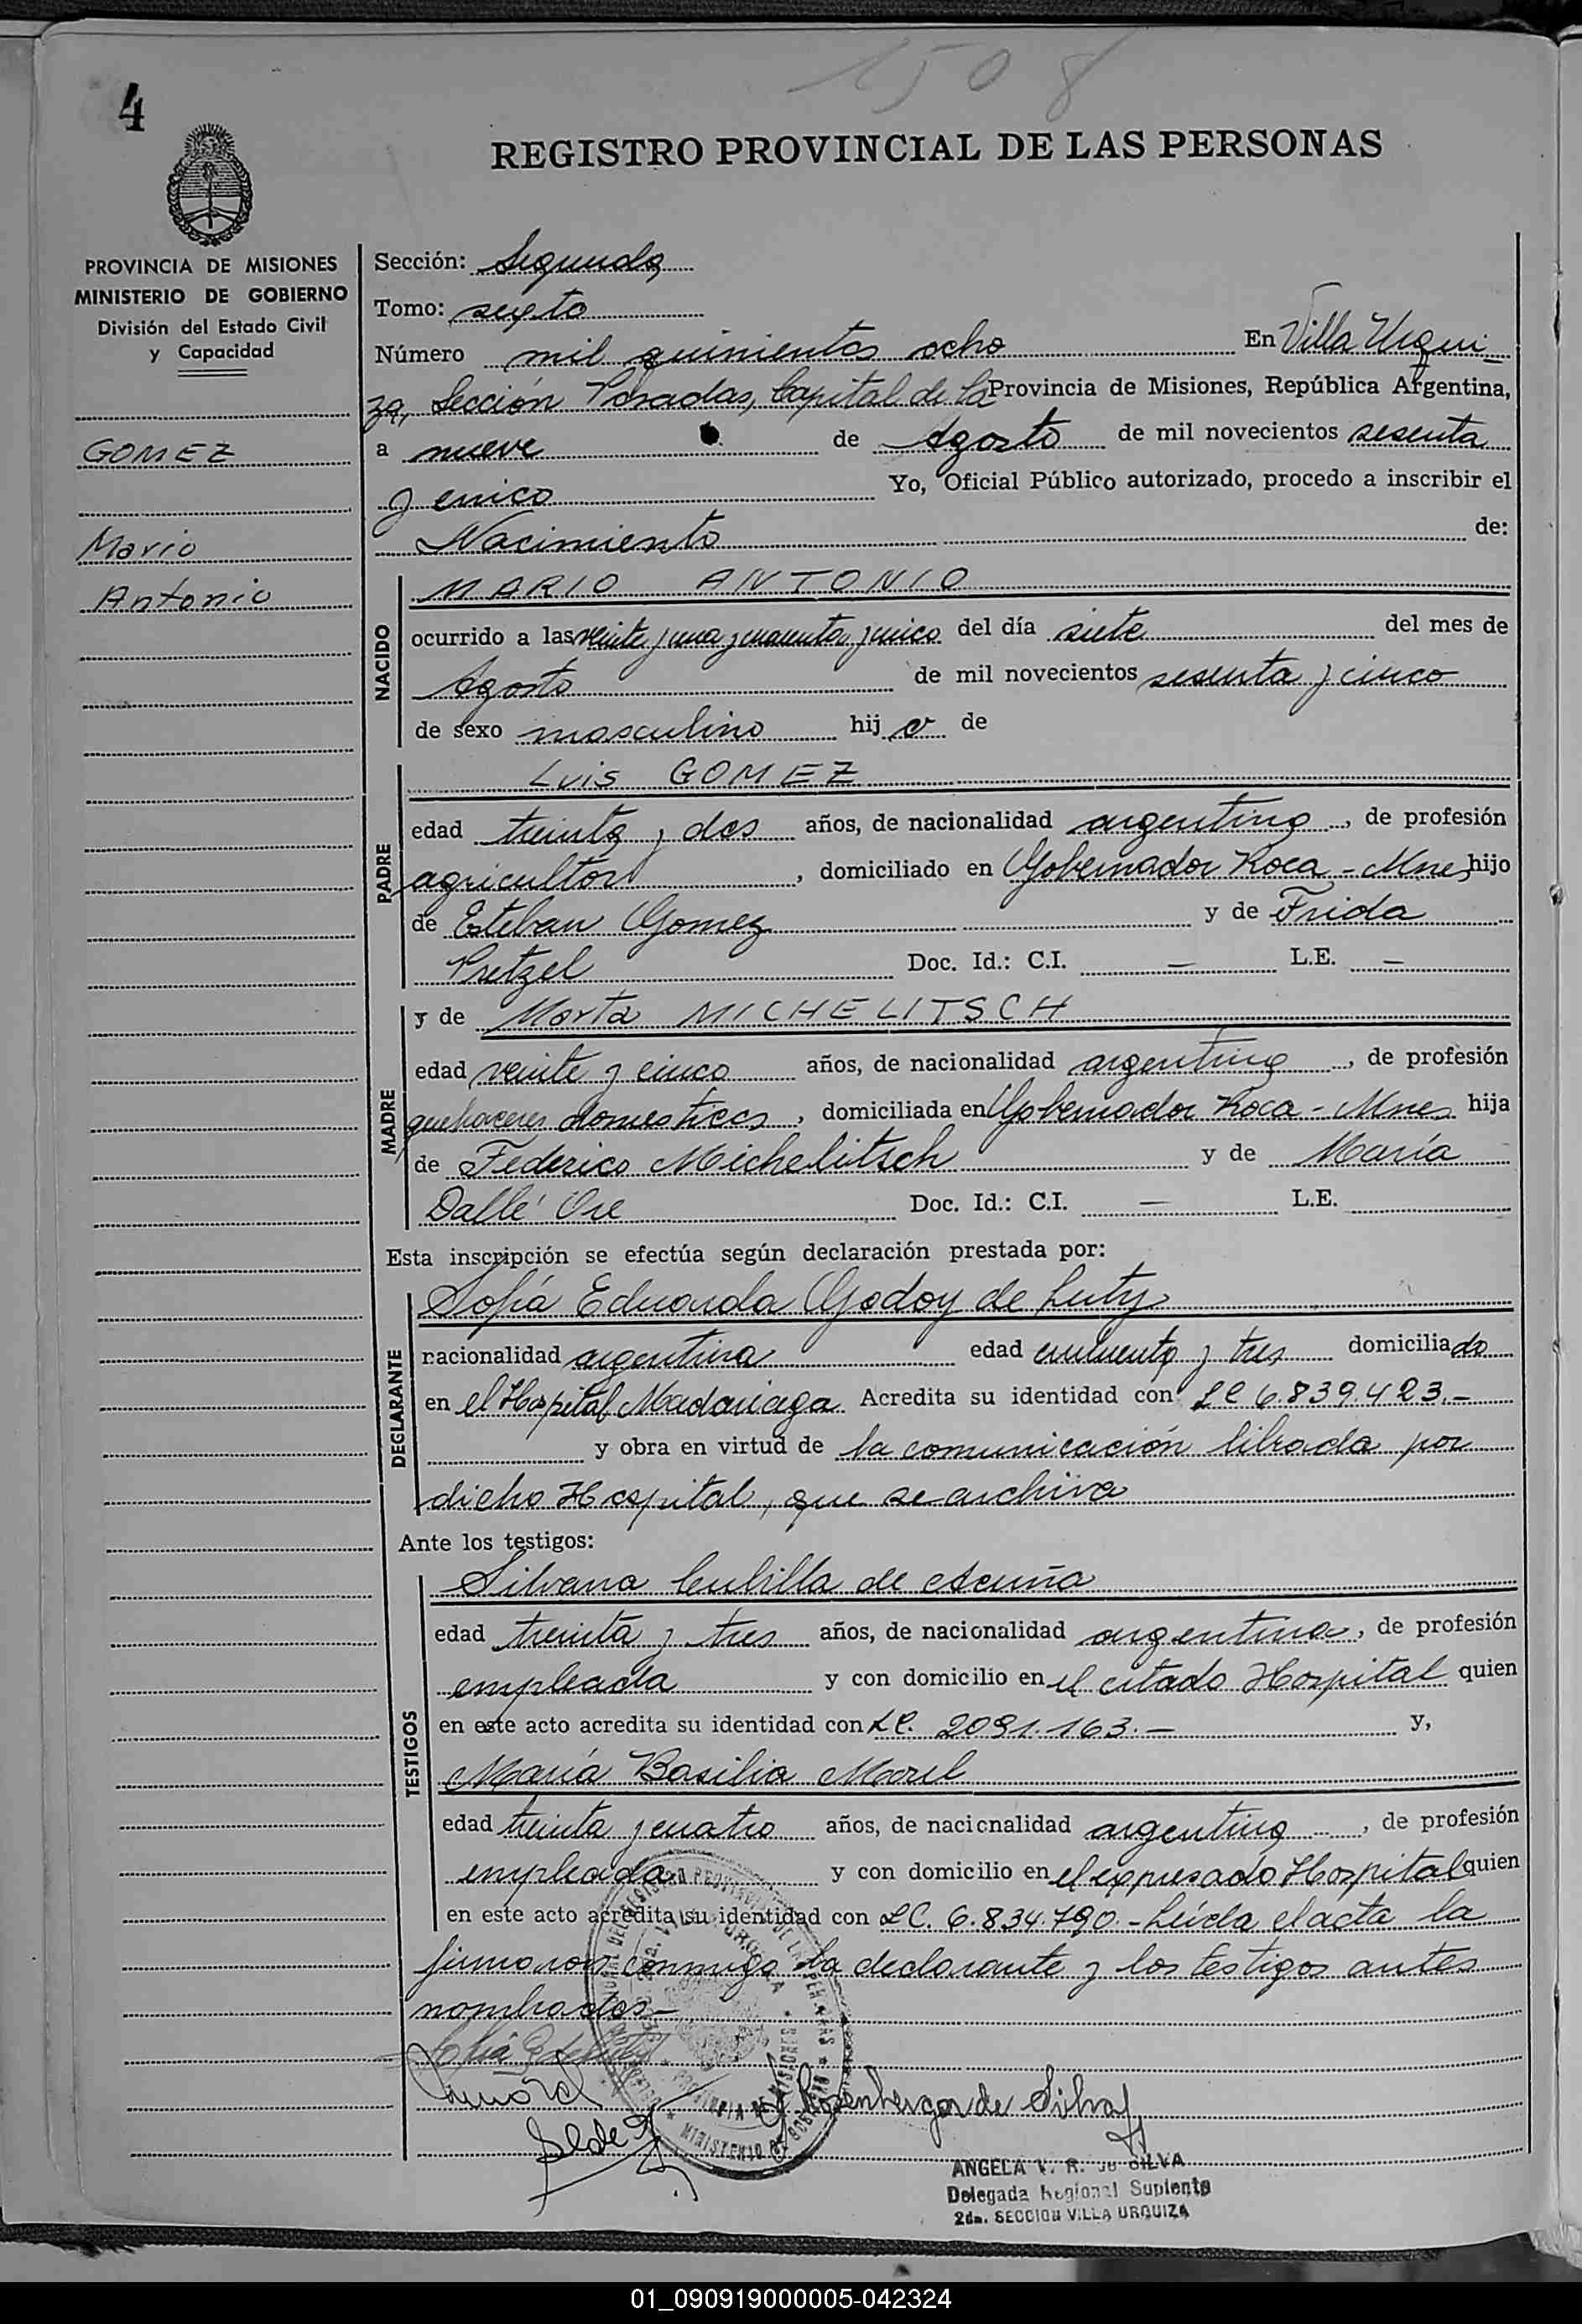 1508
4
REGISTRO PROVINCIAL DE LAS PERSONAS
PROVINCIA DE MISIONES
MINISTERIO DE GOBIERNO
División del Estado Civil
y Capacidad
GOMEZ
Mario
Antonio
Sección: Segunda
Tomo: sexto
Número mil quinientos ocho En Villa Urqui-
za, Sección Posadas, Capital de la Provincia de Misiones, República Argentina,
a nueve de Agosto de mil novecientos sesenta
y cinco Yo, Oficial Público autorizado, procedo a inscribir el
Nacimiento de:
NACIDO
MARIO ANTONIO
ocurrido a las veinte y una y cuarenta y cinco del día siete del mes de
Agosto de mil novecientos sesenta y cinco
de sexo masculino hijo de
PADRE
Luis GOMEZ
edad treinta y dos años, de nacionalidad argentina, de profesión
agricultor, domiciliado en Gobernador Roca - Mnes hijo
de Esteban Gomez y de Frida
Pretzel Doc. Id.: C.I. — L.E. —
MADRE
y de Marta MICHELITSCH
edad veinte y cinco años, de nacionalidad argentina, de profesión
quehaceres domesticos, domiciliada en Gobernador Roca - Mnes hija
de Federico Michelitsch y de María
Dalle' Ore Doc. Id.: C.I. — L.E.
Esta inscripción se efectúa según declaración prestada por:
DECLARANTE
Sofía Eduarda Godoy de Luty
nacionalidad argentina edad cincuenta y tres domiciliado
en el Hospital Madariaga Acredita su identidad con LC 6.839.423.-
y obra en virtud de la comunicación librada por
dicho Hospital, que se archiva
Ante los testigos:
TESTIGOS
Silvana Cubilla de Acuña
edad treinta y tres años, de nacionalidad argentina, de profesión
empleada y con domicilio en el citado Hospital quien
en este acto acredita su identidad con LC. 2091.163.- y,
María Basilia Morel
edad treinta y cuatro años, de nacionalidad argentina, de profesión
empleada y con domicilio en el expresado Hospital quien
en este acto acredita su identidad con LC. 6.834.790.- Leída el acta la
firmaron conmigo la declarante y los testigos antes
nombrados-
Rosenberger de Silva
ANGELA V. R. de SILVA
Delegada Regional Suplente
2da. SECCION VILLA URQUIZA
01_090919000005-042324